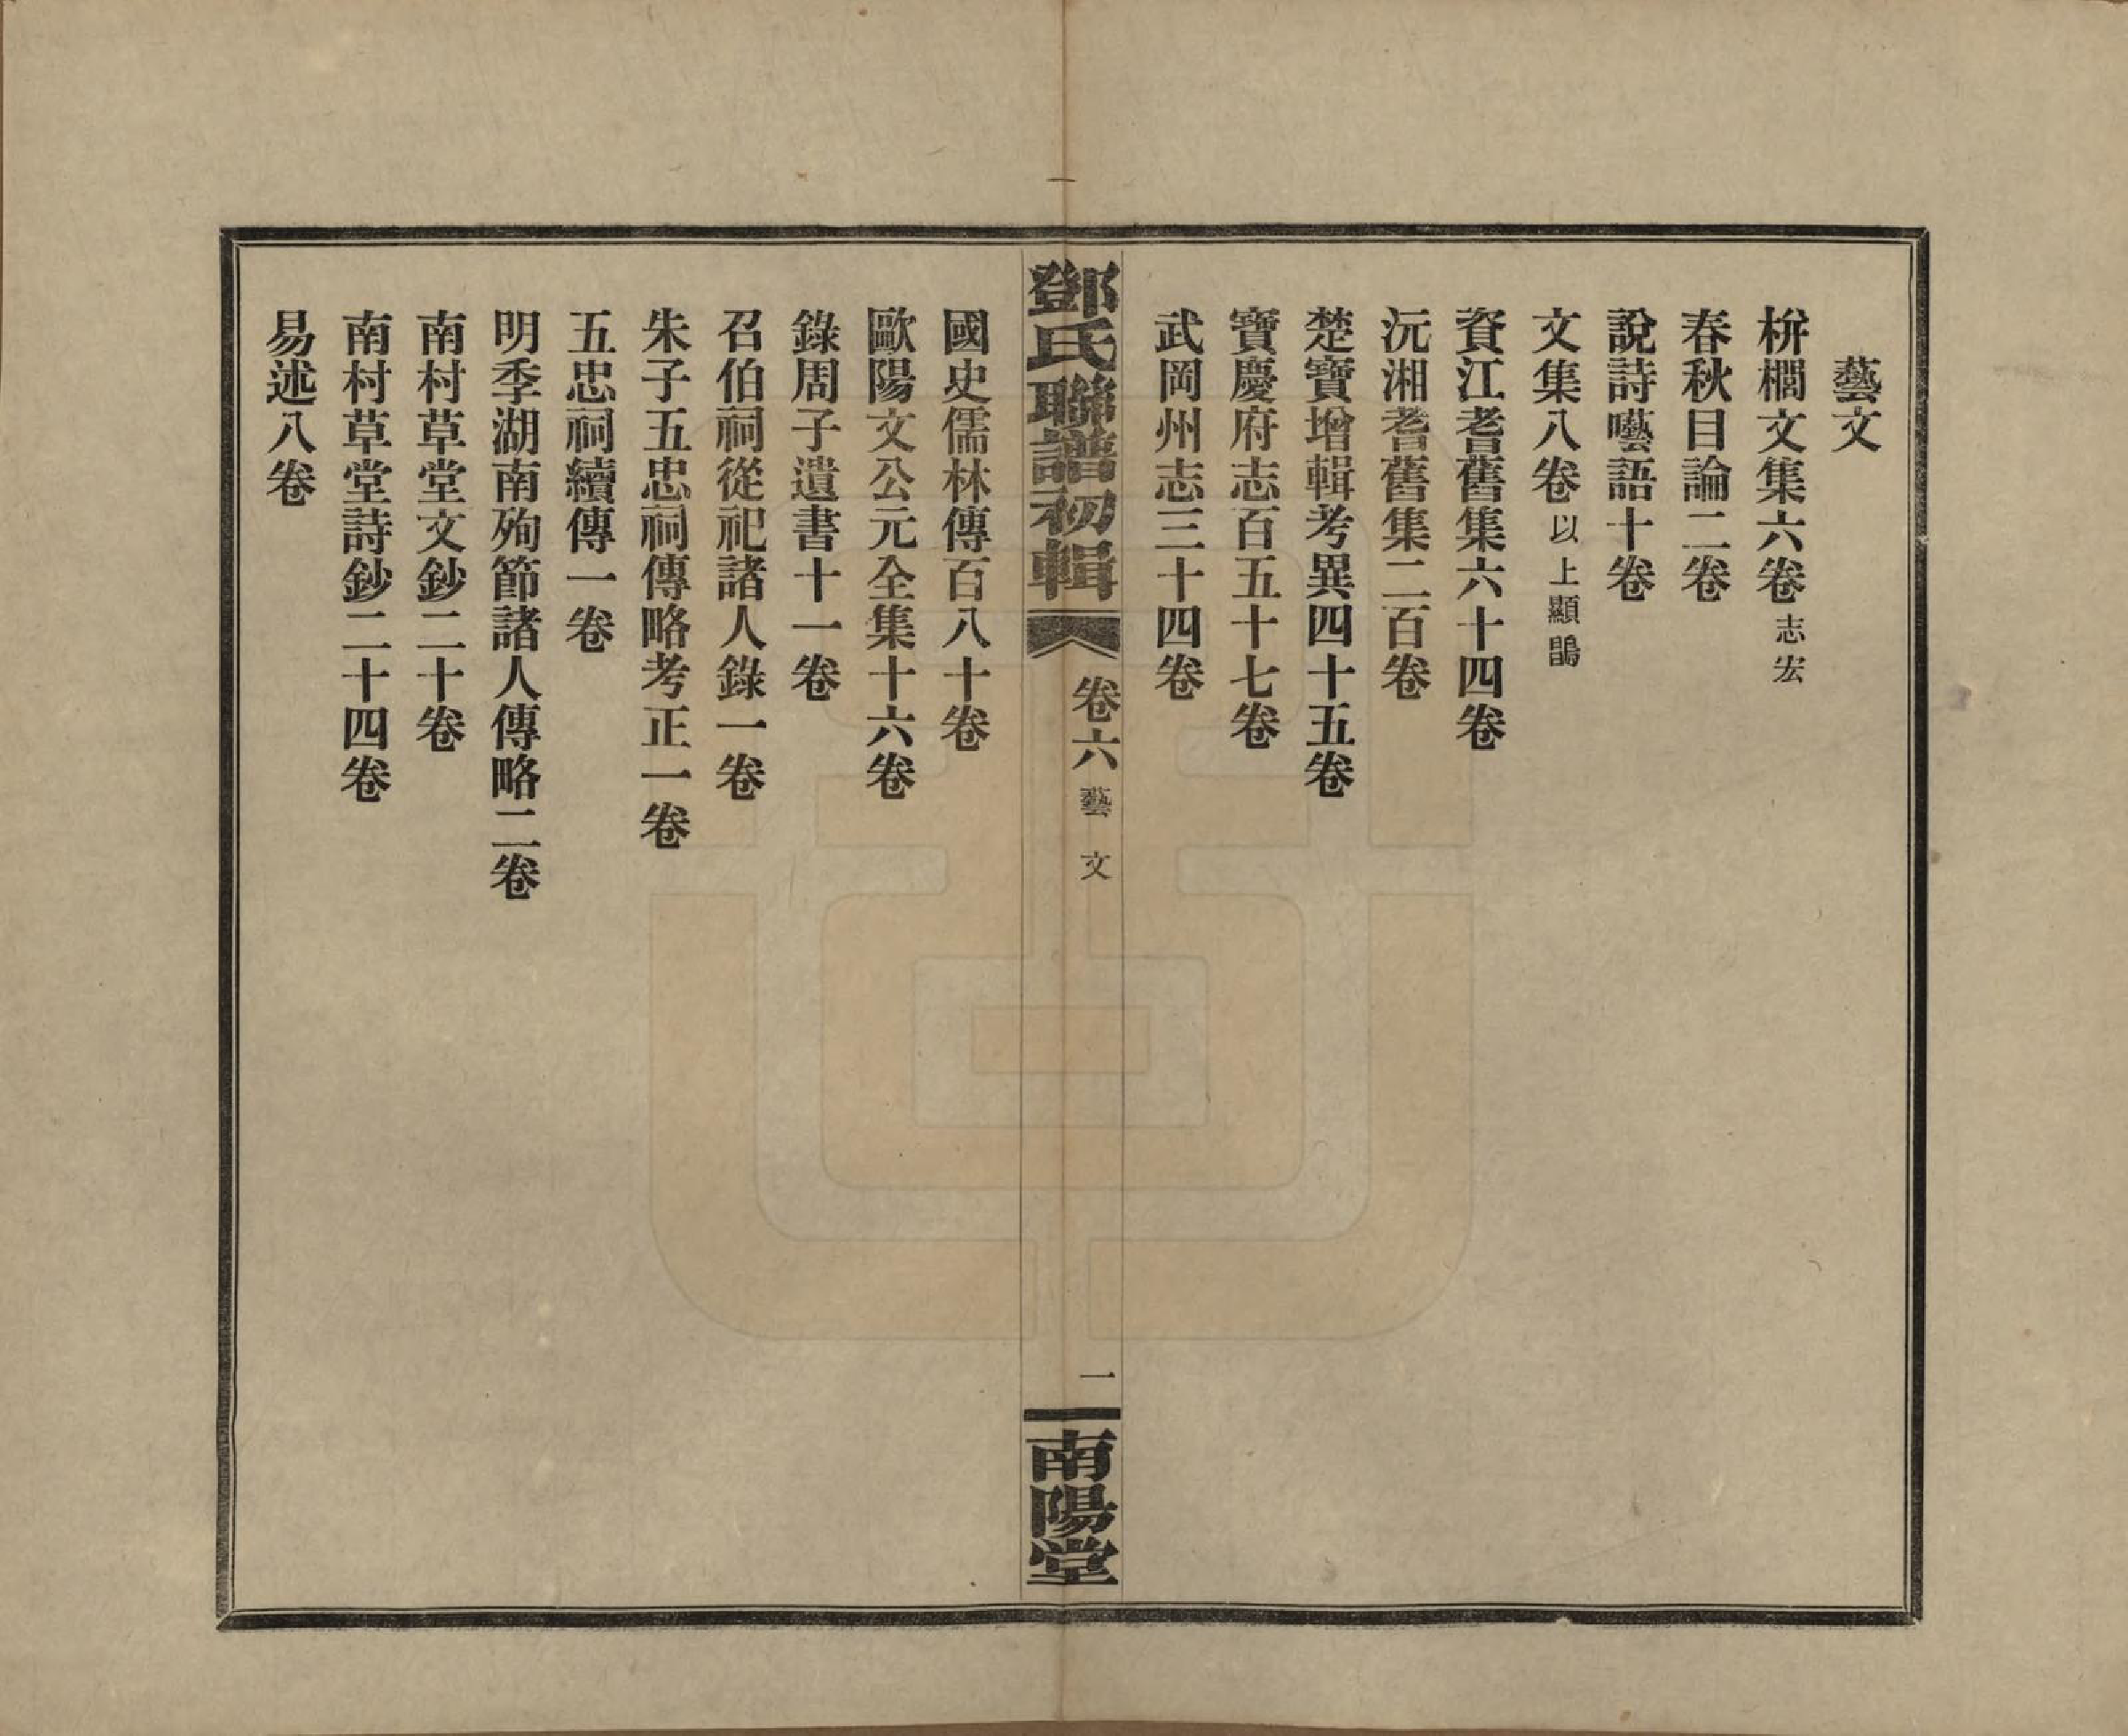 藝文
栟櫚文集六卷志宏
春秋目論二卷
說詩囈語十卷
文集八卷以上顯鵑
資江耆舊集六十四卷
沅湘耆舊集二百卷
楚寶增輯考異四十五卷
寶慶府志百五十七卷
武岡州志三十四卷
鄧氏聯譜初輯 卷六 藝文 一 南陽堂
國史儒林傳百八十卷
歐陽文公元全集十六卷
錄周子遺書十一卷
召伯祠從祀諸人錄一卷
朱子五忠祠傳略考正一卷
五忠祠續傳一卷
明季湖南殉節諸人傳略二卷
南村草堂文鈔二十卷
南村草堂詩鈔二十四卷
易述八卷